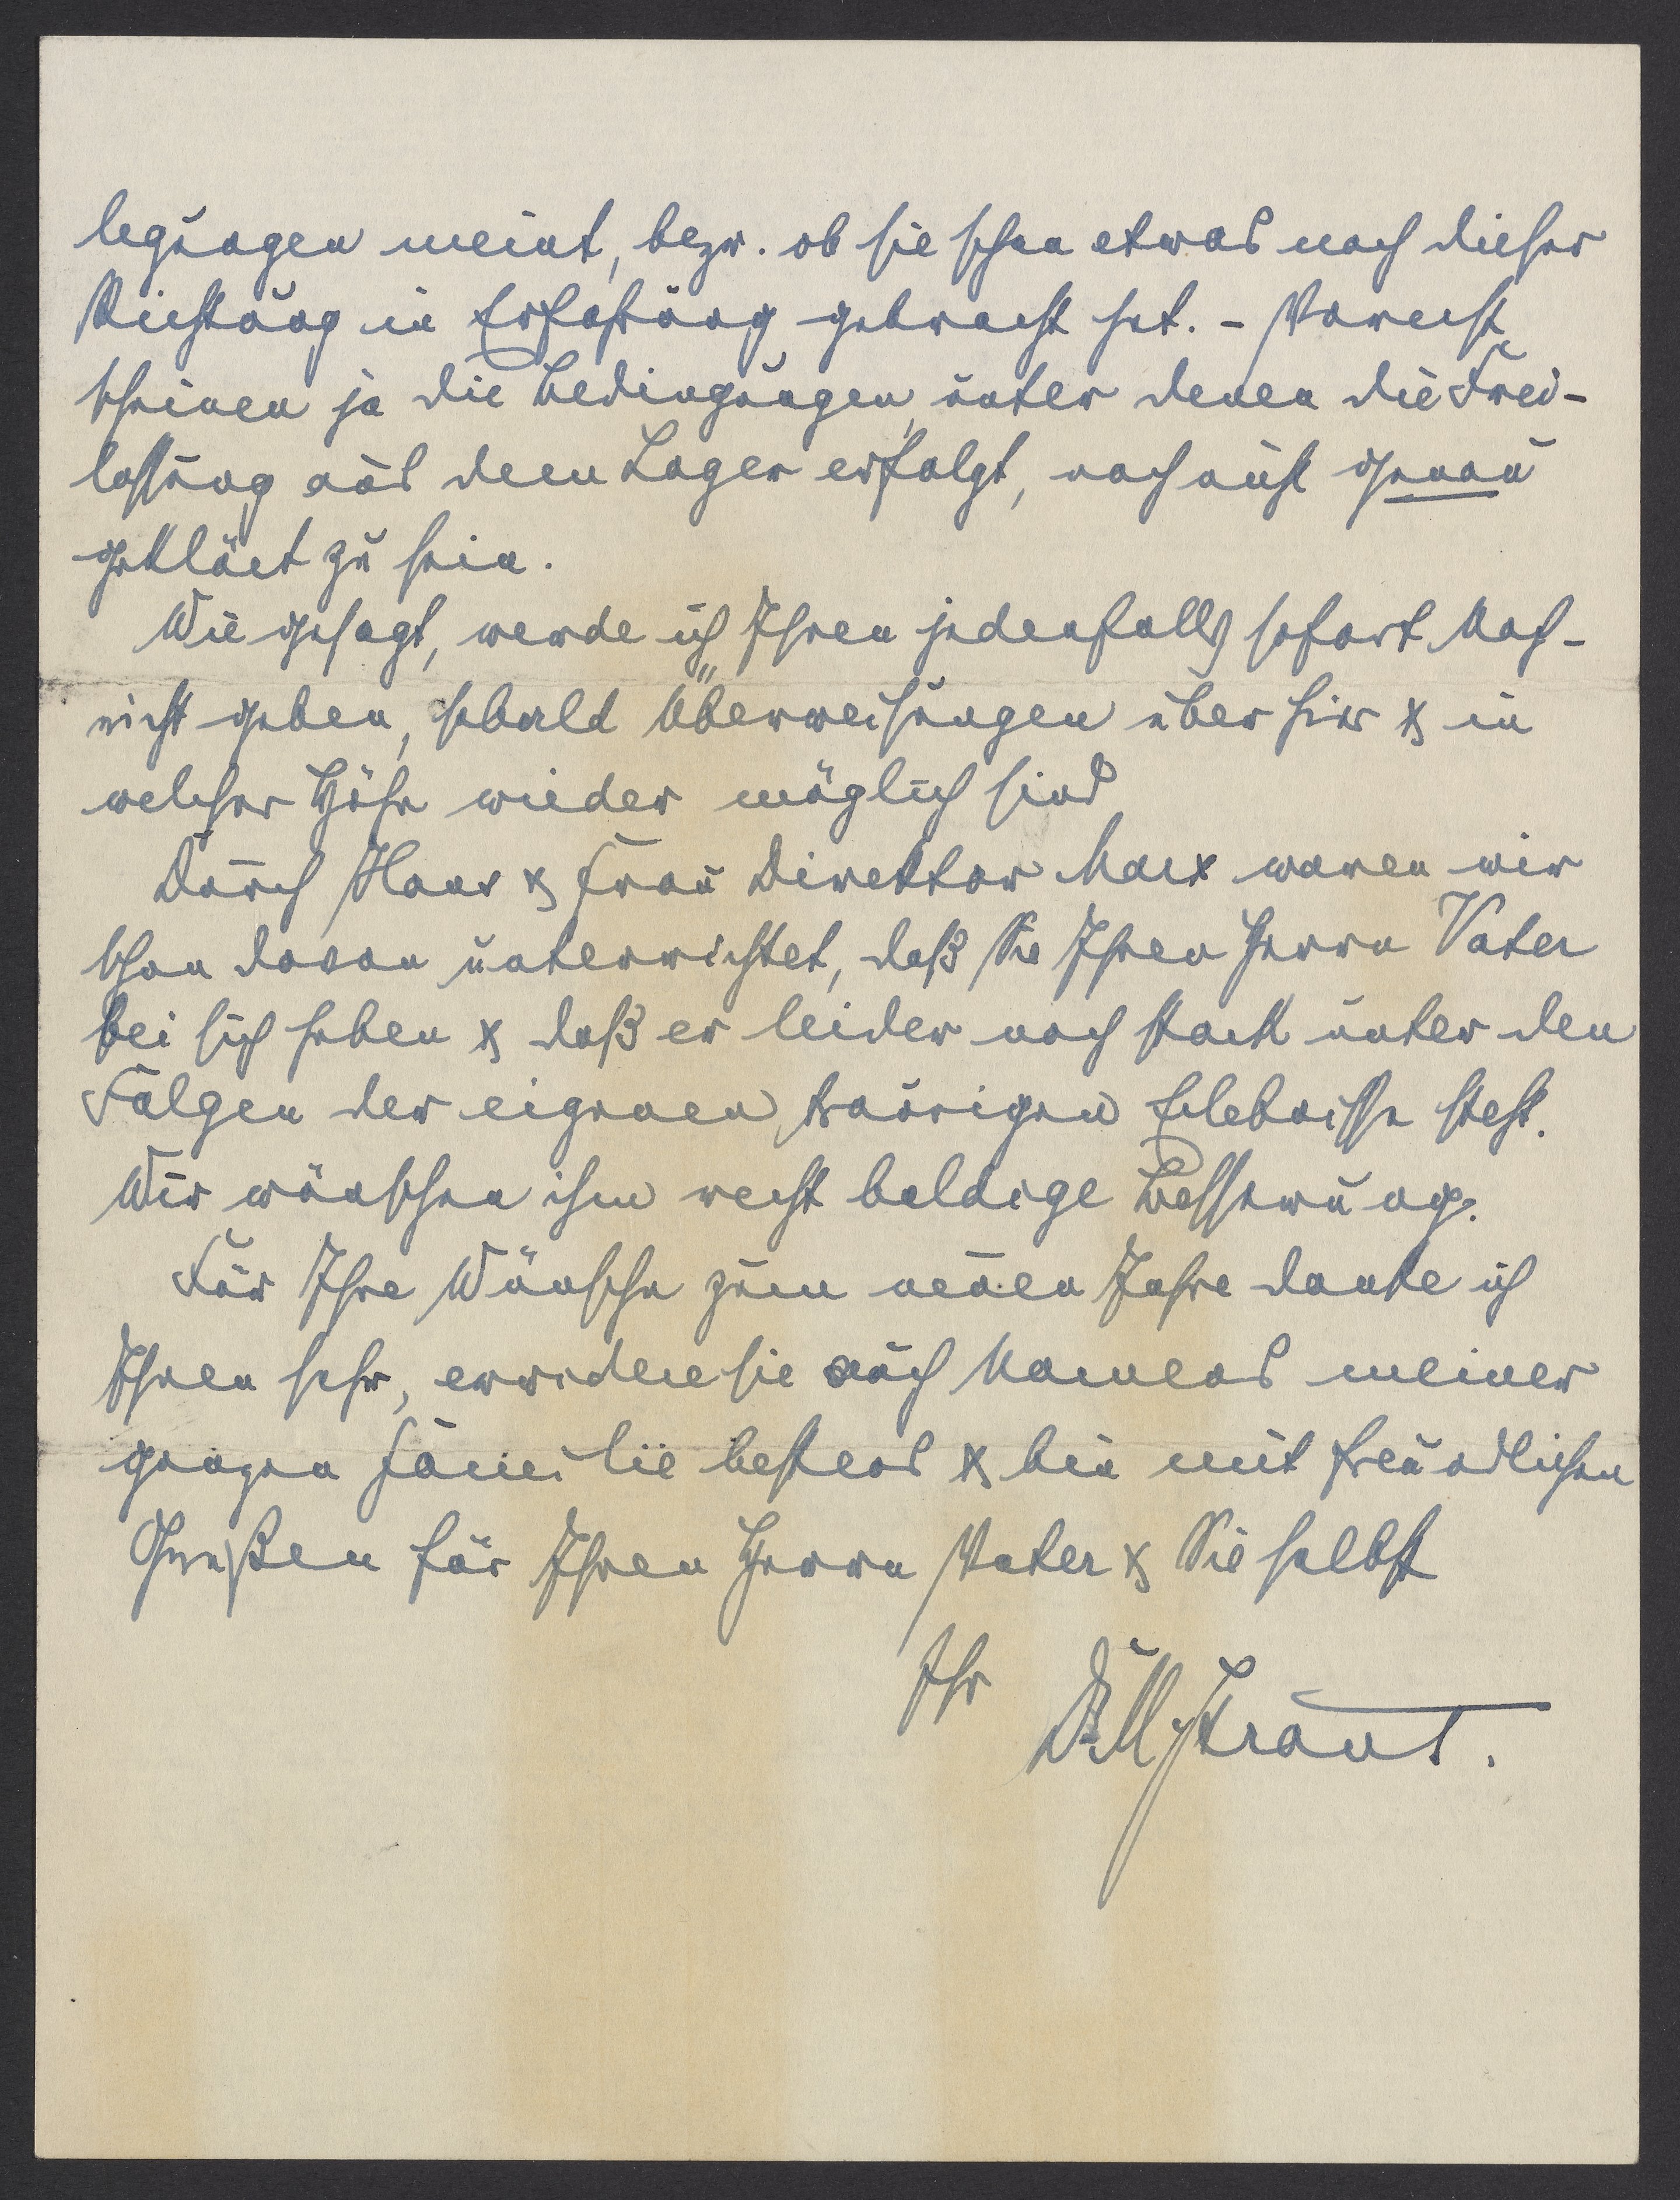 legungen meint, bezw. ob sie schon etwas nach dieser
Richtung in Erfahrung gebracht hat. - Vorerst
scheinen ja die Bedingungen, unter denen die Frei-
lassung aus dem Lager erfolgt, noch nicht genau
geklärt zu sein.
Wie gesagt, werde ich Ihnen jedenfalls sofort Nach-
richt geben, sobald Überweisungen über hier & in
welcher Höhe wieder möglich sind
Durch Herr & Frau Direktor Marx waren wir
schon davon unterrichtet, daß Sie Ihren Herrn Vater
bei sich haben & daß er leider noch stark unter den
Folgen der eigenen, traurigen Erlebnisse steht.
Wir wünschen ihm recht baldige Besserung.
Für Ihre Wünsche zum neuen Jahre danke ich
Ihnen sehr, erwidere sie auch Namens meiner
ganzen Familie bestens & bin mit freundlichen
Grüßen für Ihren Herrn Vater & Sie selbst
Ihr